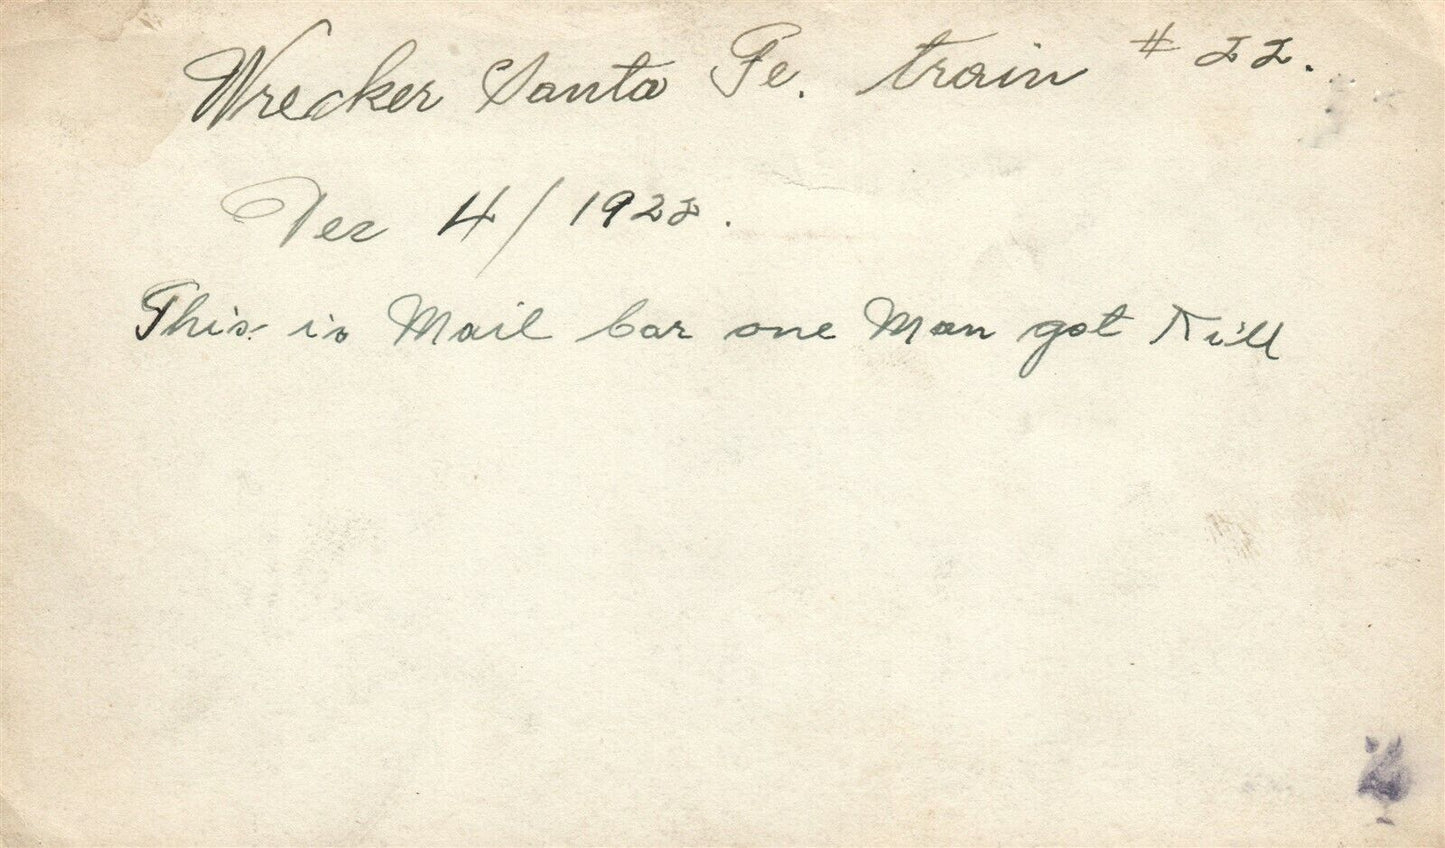 Wrecker Santa Fe. train # 22.
Dec 4/1922.
This is Mail Car one Man got Kill